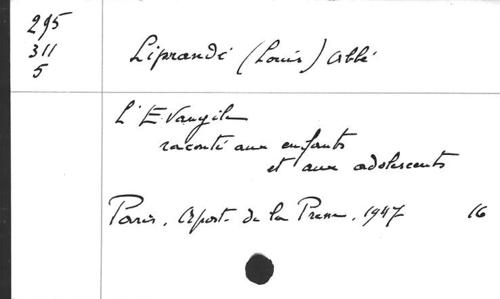 295
311
5
Liprandi (Louis) Abbé
L'Evangile
raconté aux enfants
et aux adolescents
Paris. Apost. de la Presse. 1947 16